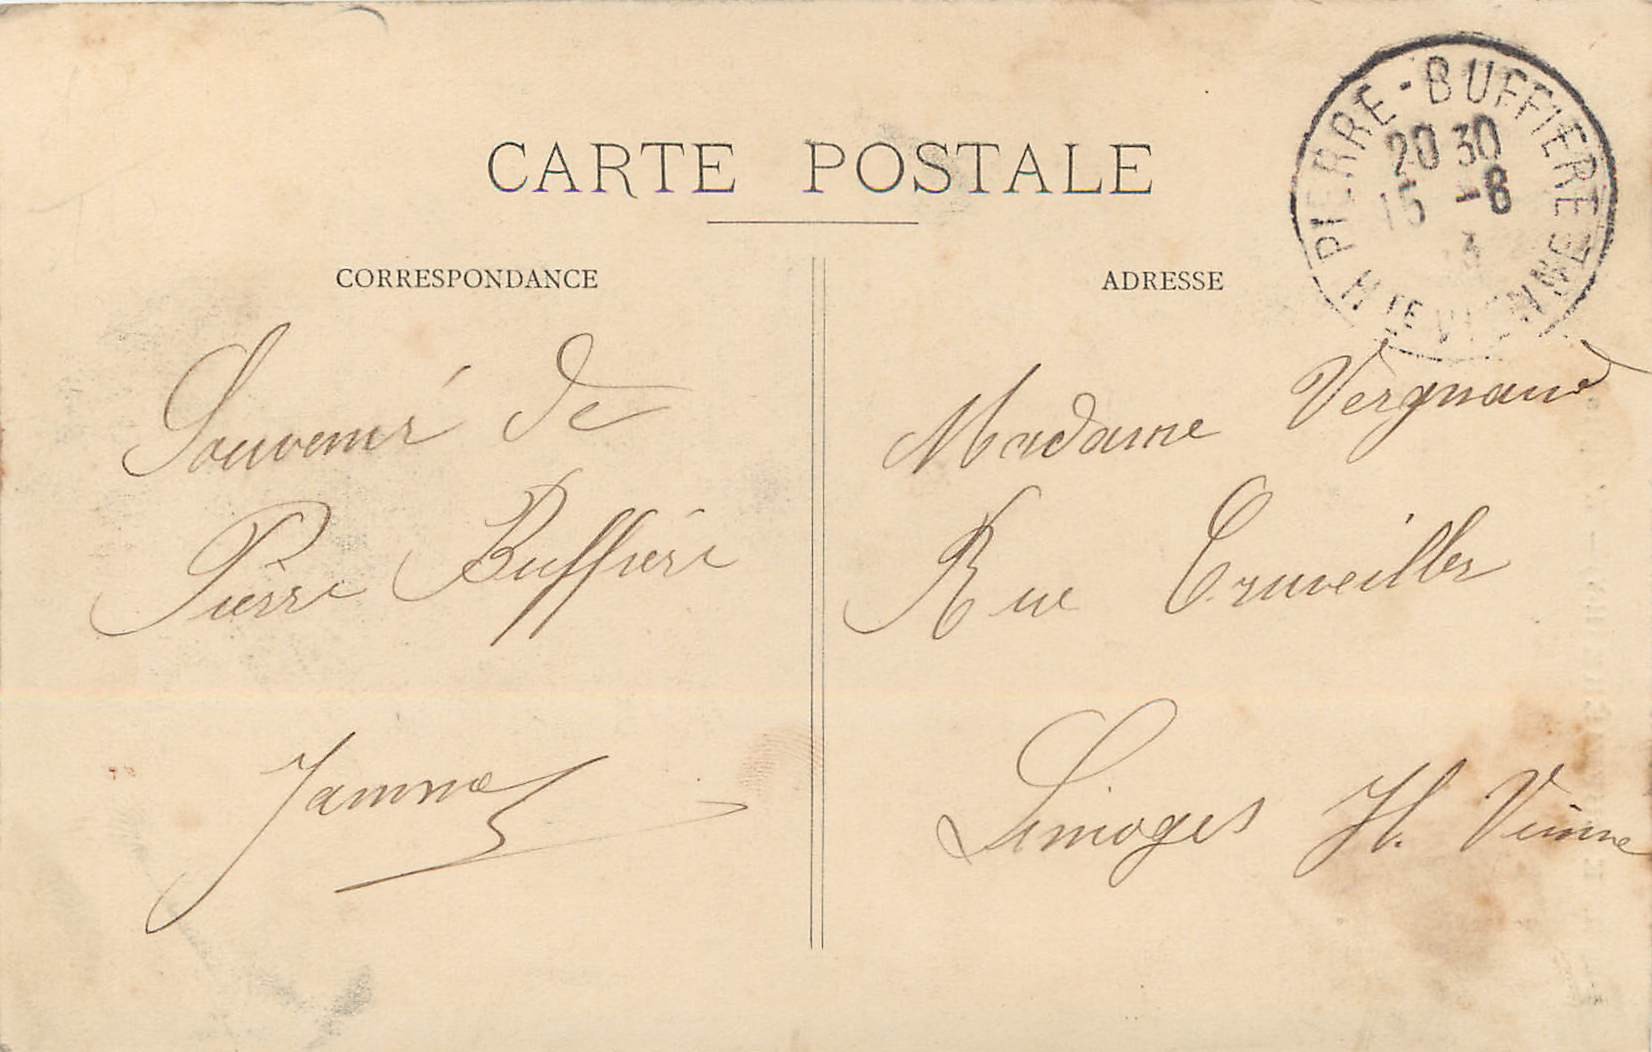 CARTE POSTALE
CORRESPONDANCE
Souvenir de
Pierre Buffière
ADRESSE
PIERRE-BUFFIERE
20 30
15 -8
3
HTE VIENNE
Madame Vergnaud
Rue Cruveilher
Limoges H. Vienne